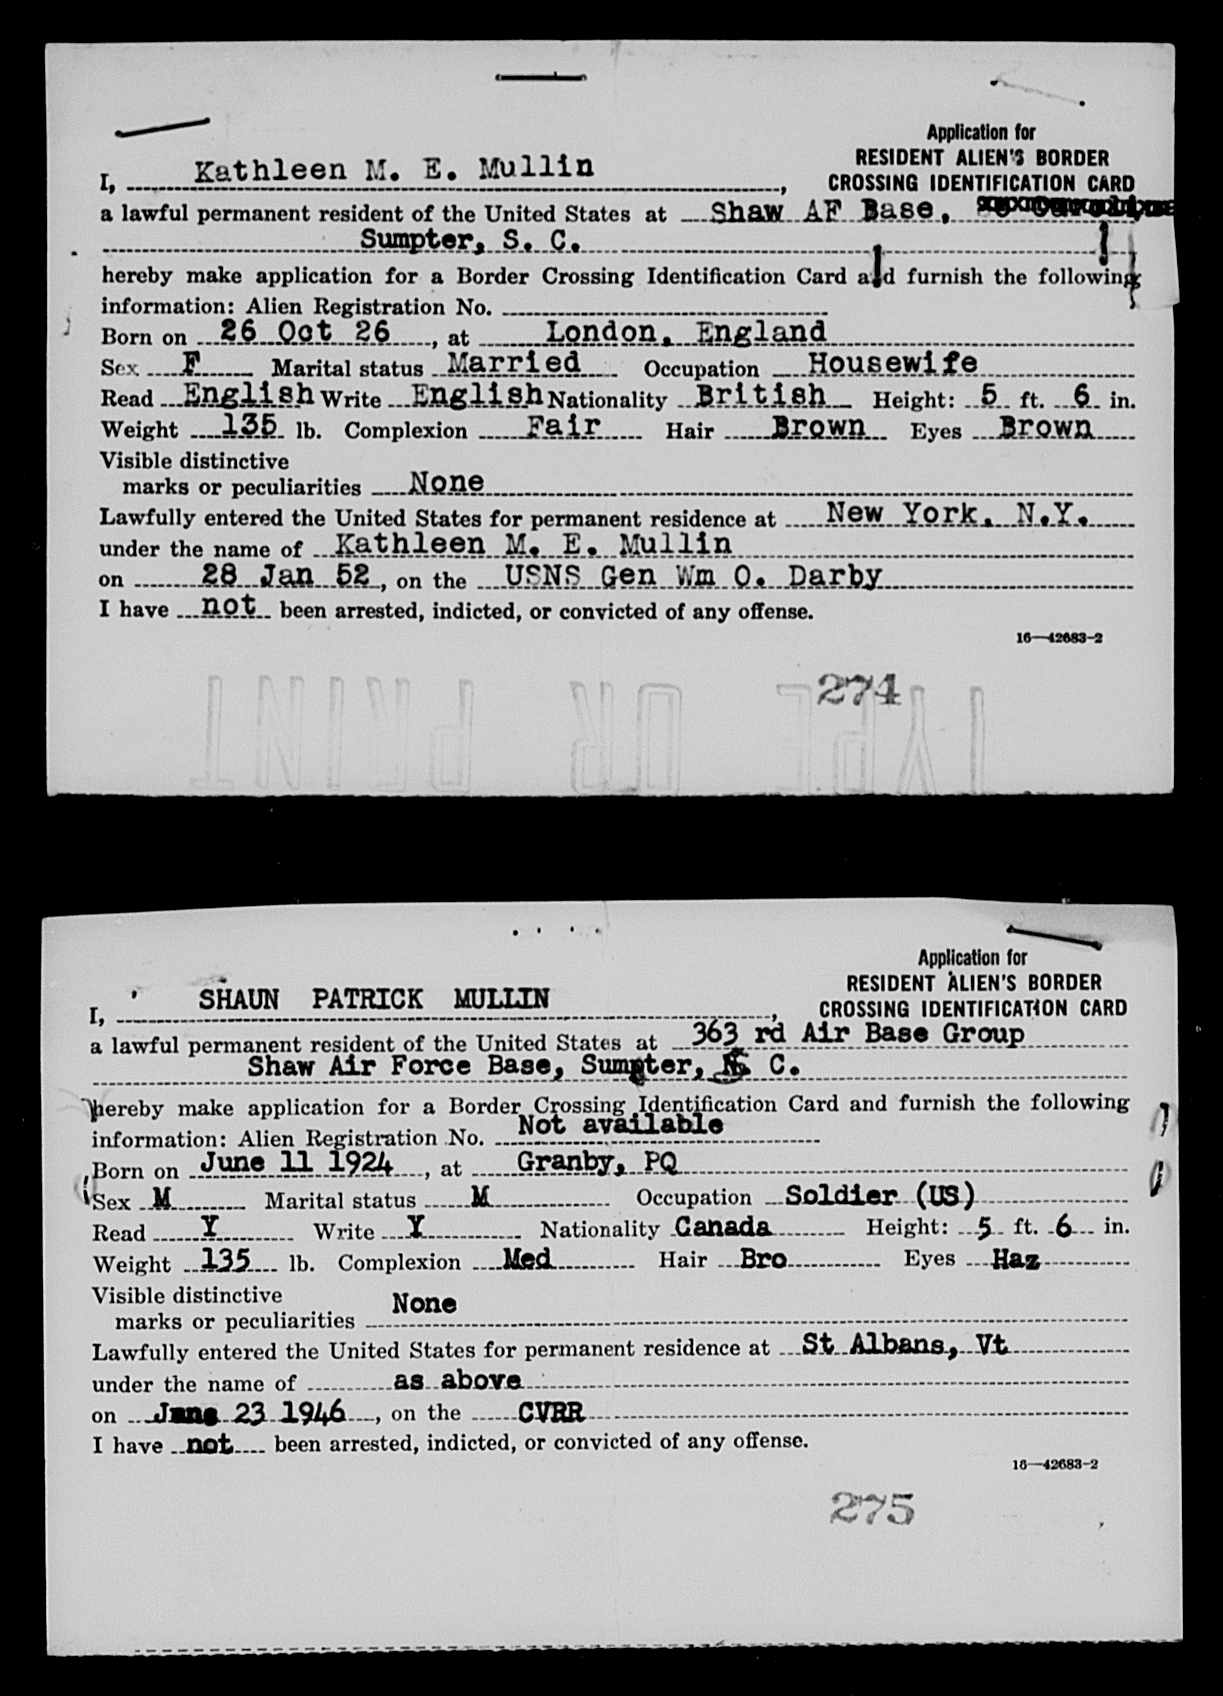 Application for
RESIDENT ALIEN'S BORDER
CROSSING IDENTIFICATION CARD
I, Kathleen M. E. Mullin,
a lawful permanent resident of the United States at Shaw AF Base,
Sumpter, S. C.
hereby make application for a Border Crossing Identification Card and furnish the following
information: Alien Registration No.
Born on 26 Oct 26, at London, England
Sex F Marital status Married Occupation Housewife
Read English Write English Nationality British Height: 5 ft. 6 in.
Weight 135 lb. Complexion Fair Hair Brown Eyes Brown
Visible distinctive
marks or peculiarities None
Lawfully entered the United States for permanent residence at New York, N.Y.
under the name of Kathleen M. E. Mullin
on 28 Jan 52, on the USNS Gen Wm O. Darby
I have not been arrested, indicted, or convicted of any offense.
16—42683-2
274
TYPE OR PRINT
Application for
RESIDENT ALIEN'S BORDER
CROSSING IDENTIFICATION CARD
I, SHAUN PATRICK MULLIN,
a lawful permanent resident of the United States at 363 rd Air Base Group
Shaw Air Force Base, Sumpter, S. C.
hereby make application for a Border Crossing Identification Card and furnish the following
information: Alien Registration No. Not available
Born on June 11 1924, at Granby, PQ
Sex M Marital status M Occupation Soldier (US)
Read Y Write Y Nationality Canada Height: 5 ft. 6 in.
Weight 135 lb. Complexion Med Hair Bro Eyes Haz
Visible distinctive
marks or peculiarities None
Lawfully entered the United States for permanent residence at St Albans, Vt
under the name of as above
on June 23 1946, on the CVRR
I have not been arrested, indicted, or convicted of any offense.
16—42683-2
275